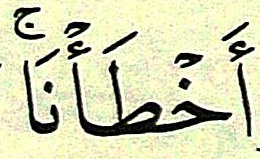 أَخۡطَأۡنَاۚ